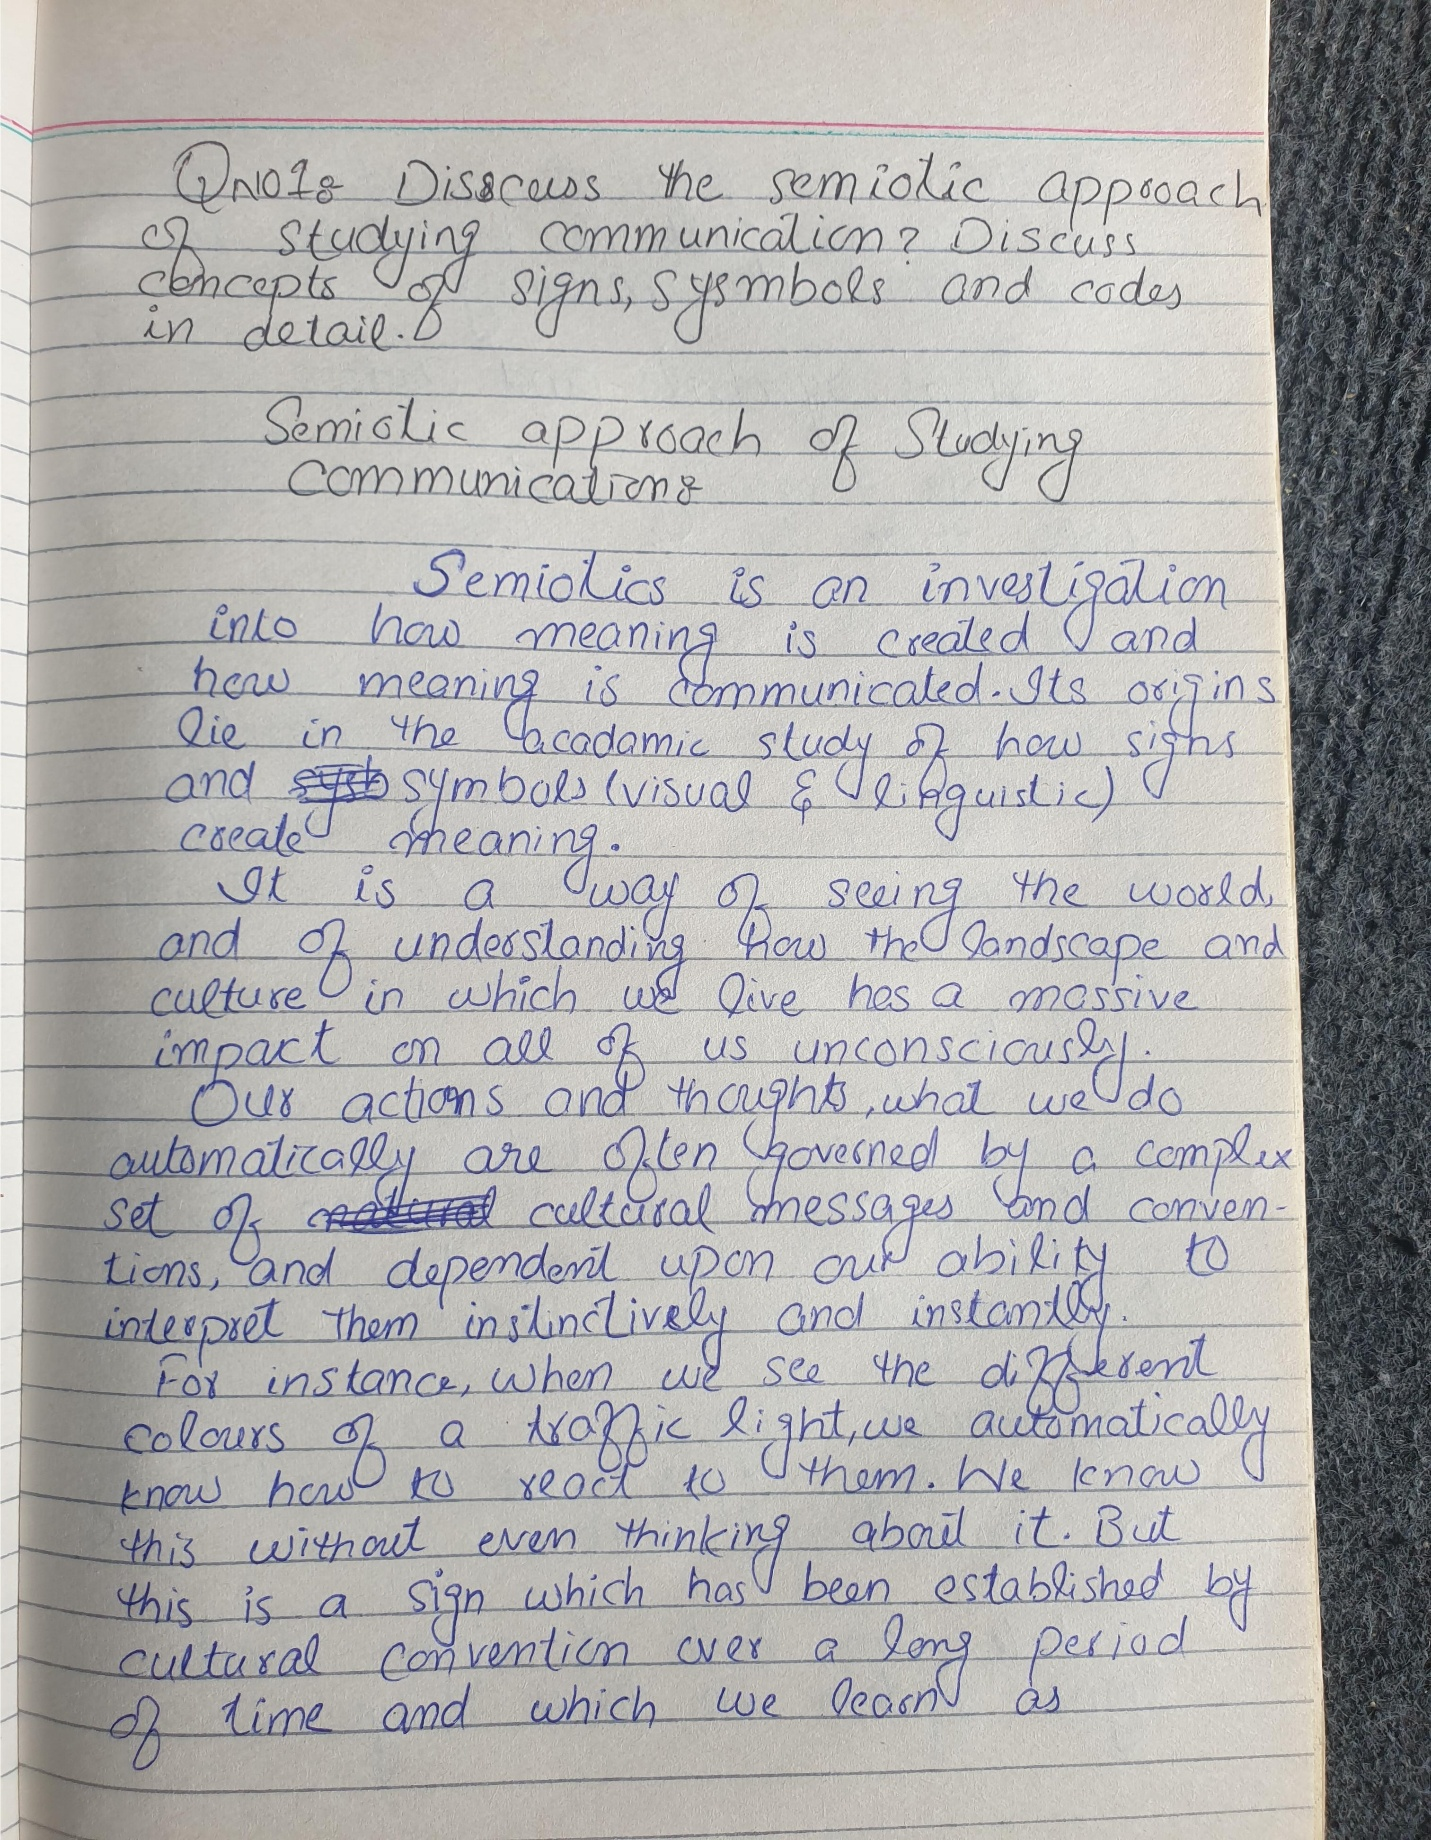 QNO1: Disscuss the semiotic approach
of studying communication? Discuss
concepts of signs, sysmbols and codes
in detail.
Semiotic approach of Studying
Communication:
Semiotics is an investigation
into how meaning is created and
how meaning is communicated. Its origins
lie in the acadamic study of how signs
and symbols (visual & linguistic)
create meaning.
It is a way of seeing the world,
and of understanding how the landscape and
culture in which we live has a massive
impact on all of us unconsciously.
Our actions and thoughts, what we do
automatically are often governed by a complex
set of cultural messages and conven-
tions, and dependent upon our ability to
interpret them instinctively and instantly.
For instance, when we see the different
colours of a traffic light, we automatically
know how to react to them. We know
this without even thinking about it. But
this is a sign which has been established by
cultural convention over a long period
of time and which we learn as